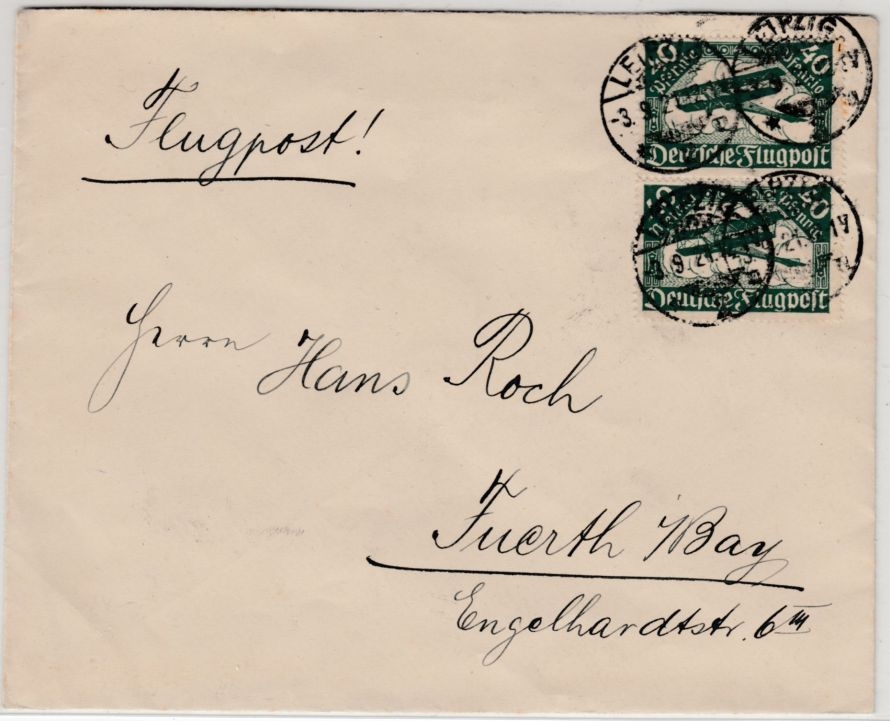 Flugpost!
40 Pfennig 40
Deutsche Flugpost
LEIPZIG
-3.9.21
40 Pfennig
Deutsche Flugpost
LEIPZIG
9.21
Herrn Hans Roch
Fuerth /Bay
Engelhardtstr. 6 III